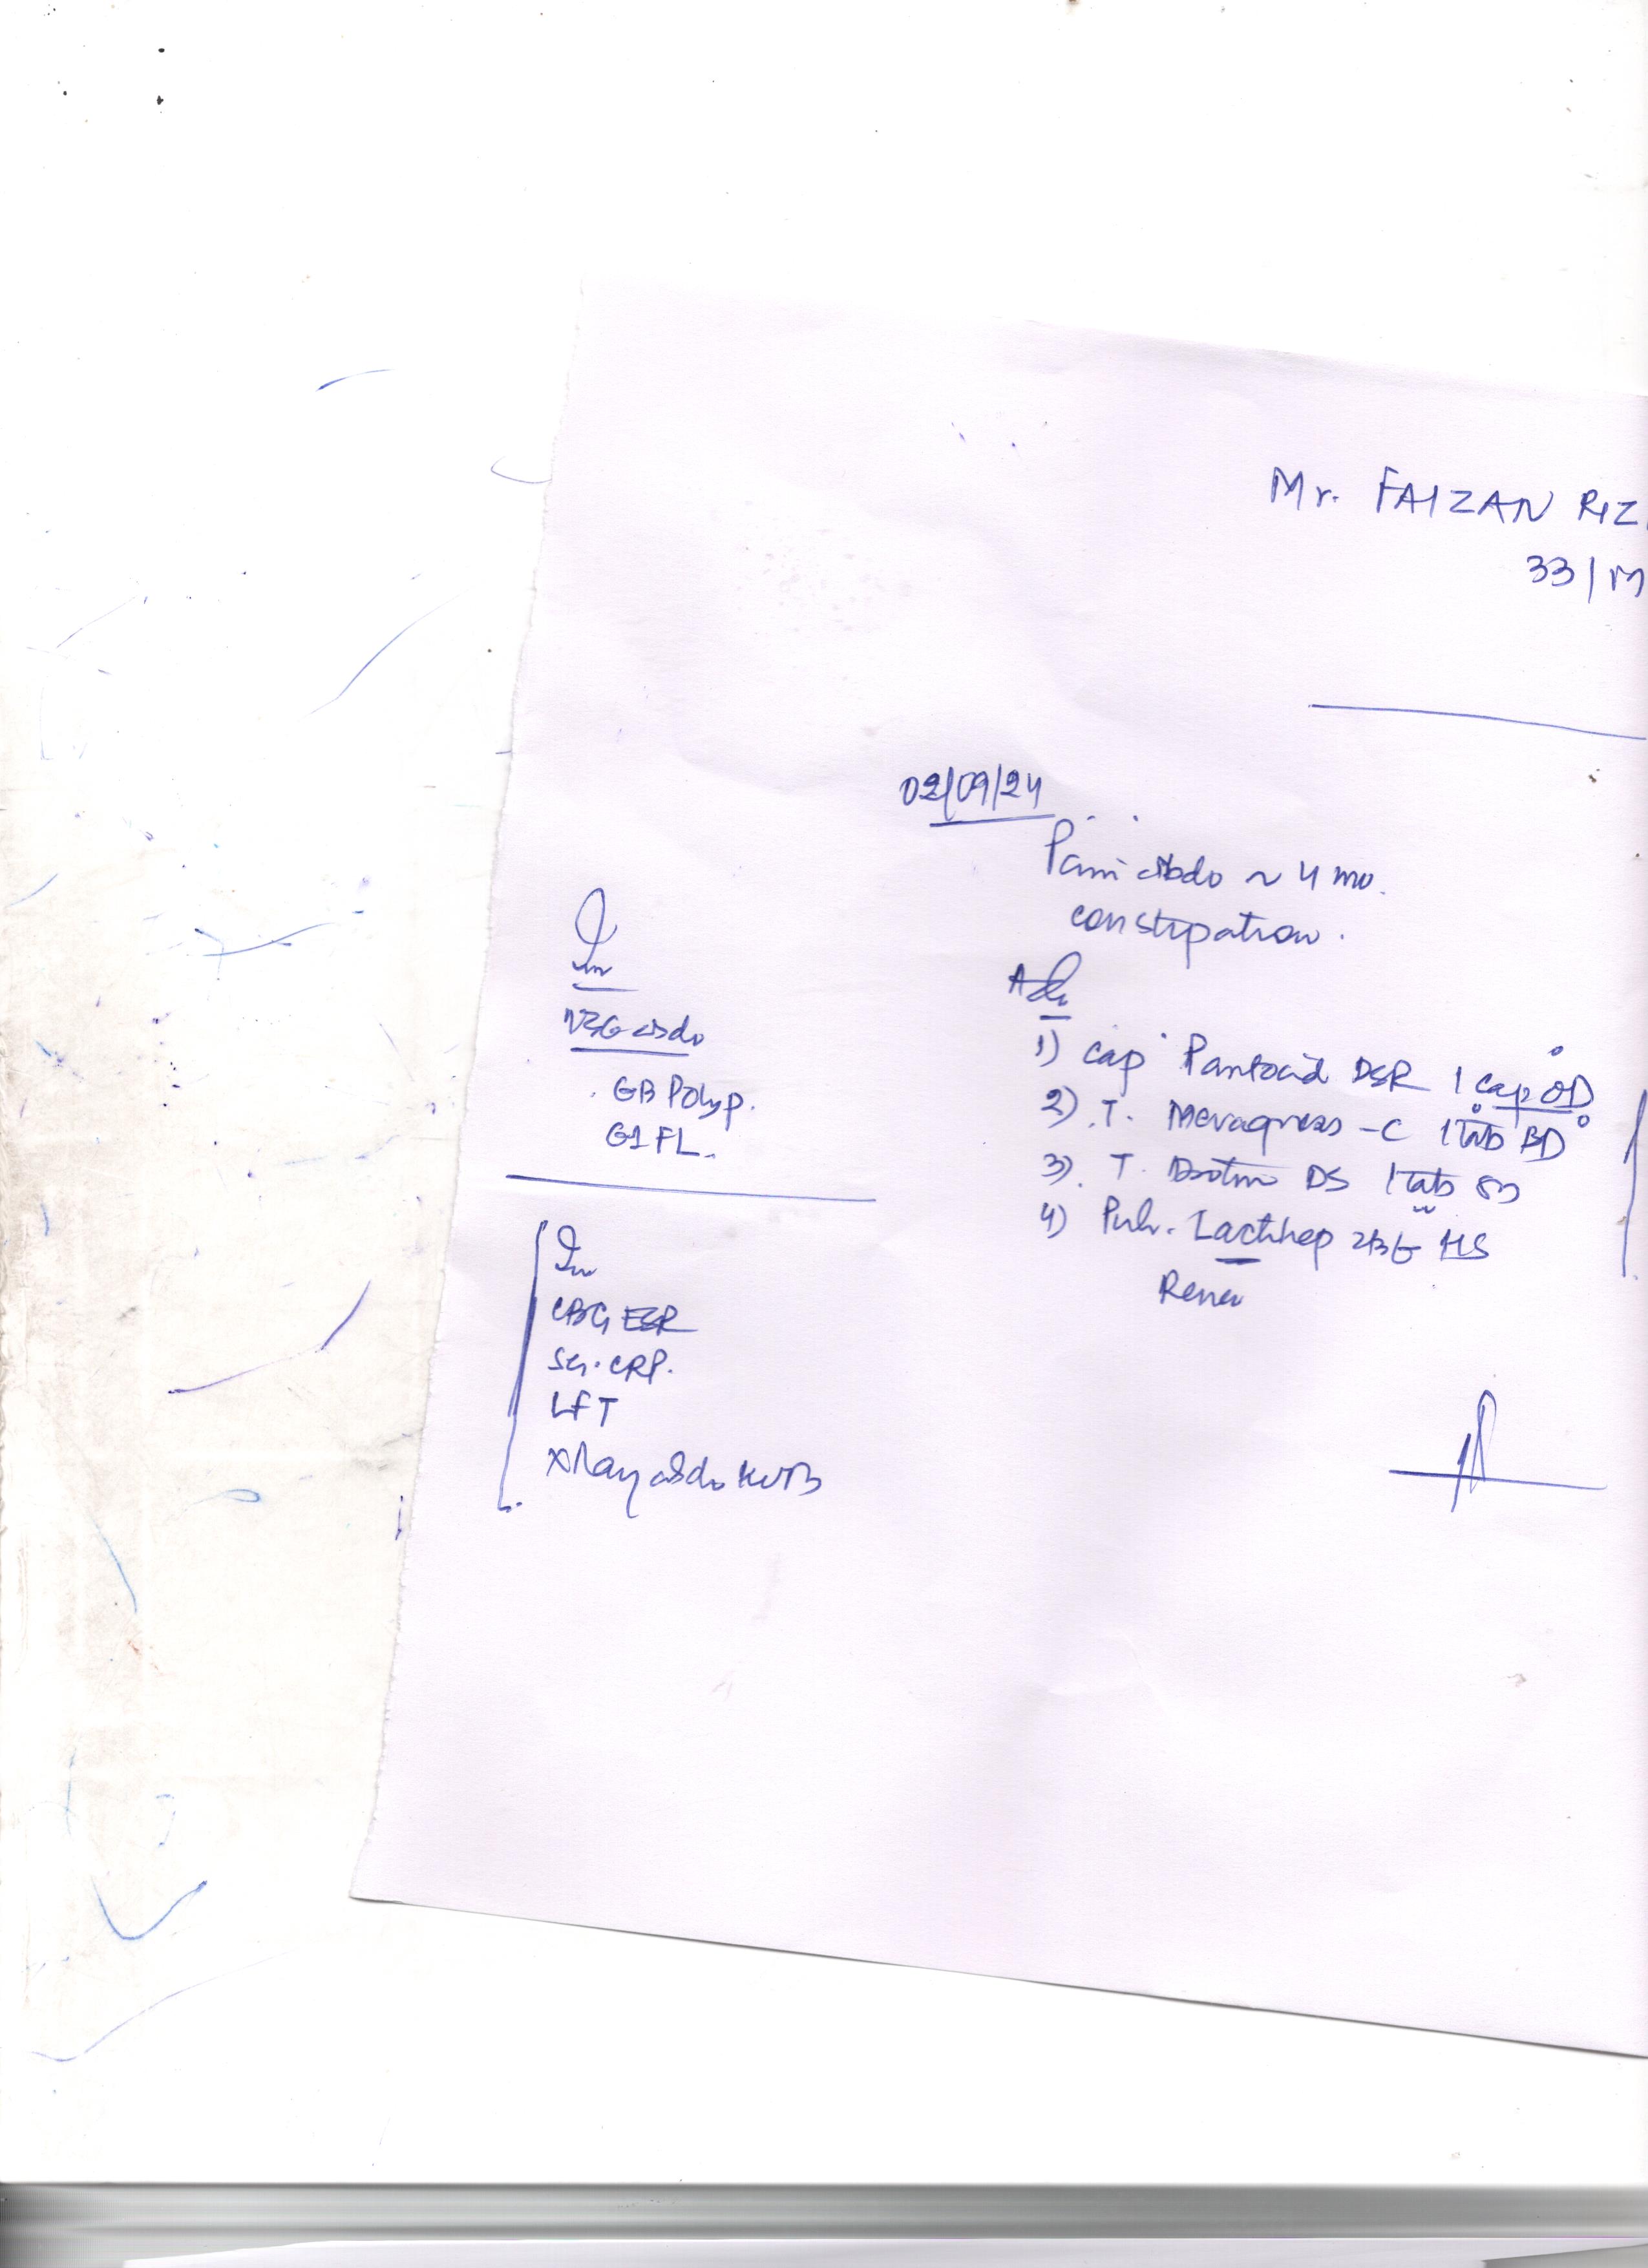 Mr. FAIZAN RIZ
33/M
02/09/24
Pain abdo ~ 4 mo.
constipation.
Adv
1) Cap Pantocid DSR 1 cap OD
2) T. -C 1 tab BD
3) T. DS 1 tab
4) Pulv. HS
Inv
USG abdo
GB Polyp.
G1 FL.
Inv
CBC, ESR
Sr. CRP.
LFT
X Ray abdo KUB